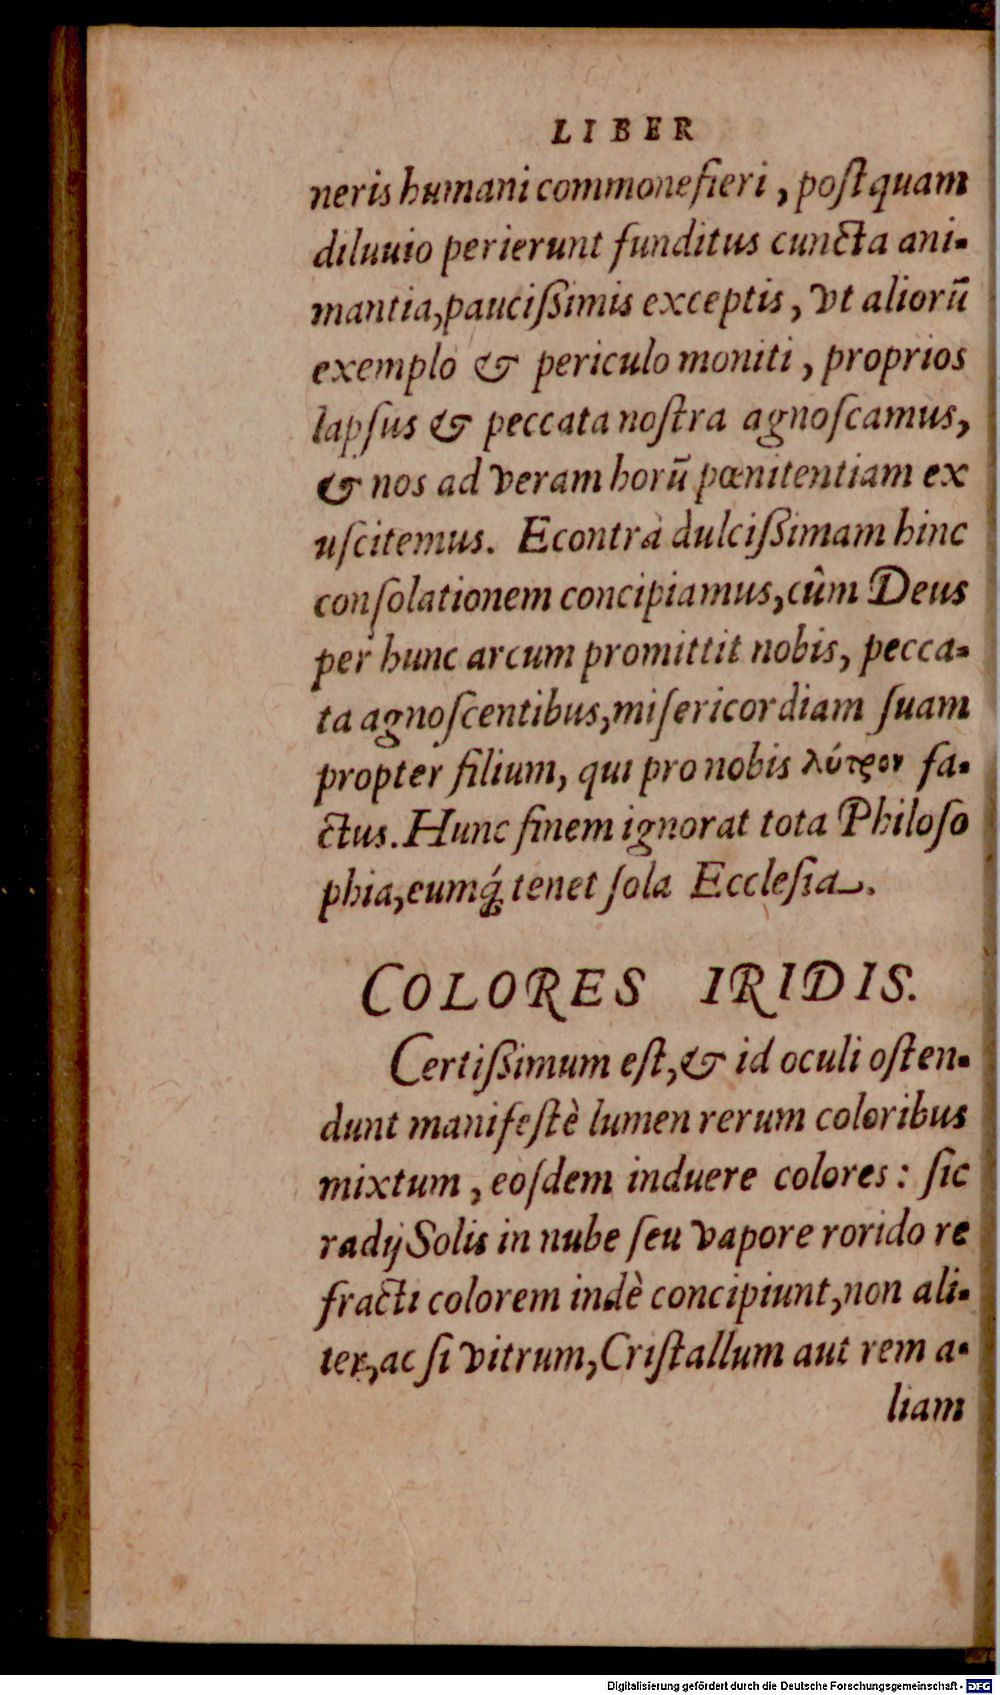 LIBER
neris humani commonefieri, poſtquam
diluuio perierunt funditus cuncta ani-
mantia, pauciſsimis exceptis, vt aliorũ
exemplo & periculo moniti, proprios
lapſus & peccata noſtra agnoſcamus,
& nos ad veram horũ pœnitentiam ex
uſcitemus. Econtrà dulciſsimam hinc
conſolationem concipiamus, cûm Deus
per hunc arcum promittit nobis, pecca-
ta agnoſcentibus, miſericordiam ſuam
propter filium, qui pro nobis λύτρον fa-
ctus. Hunc finem ignorat tota Philoſo
phia, eumq́; tenet ſola Eccleſia.
COLORES IRIDIS.
Certiſsimum eſt, & id oculi oſten-
dunt manifeſtè lumen rerum coloribus
mixtum, eoſdem induere colores: ſic
radij Solis in nube ſeu vapore rorido re
fracti colorem indè concipiunt, non ali-
ter, ac ſi vitrum, Criſtallum aut rem a-
liam
Digitalisierung gefördert durch die Deutsche Forschungsgemeinschaft - DFG